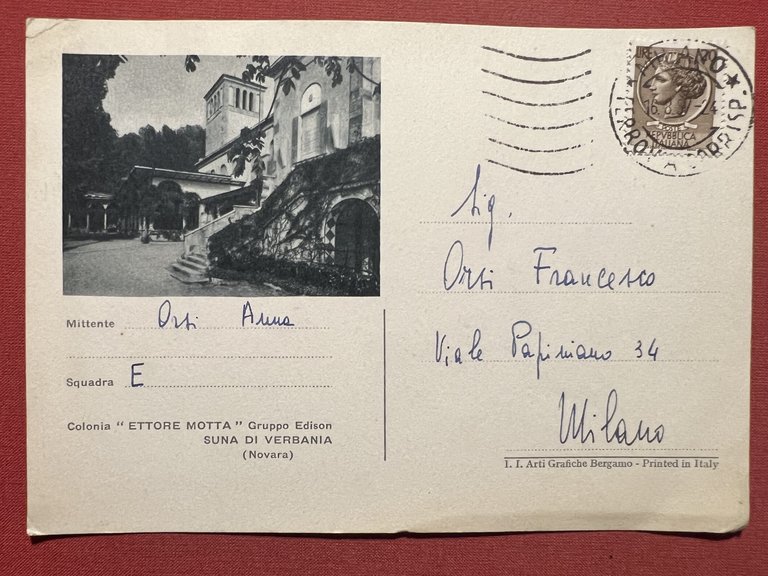 Mittente Orsi Anna
Squadra E
Colonia " ETTORE MOTTA " Gruppo Edison
SUNA DI VERBANIA
(Novara)
MILANO
16. 8
-24
REPUBBLICA
ITALIANA
Sig.
Orsi Francesco
Viale Papiniano 34
Milano
I. I. Arti Grafiche Bergamo - Printed in Italy